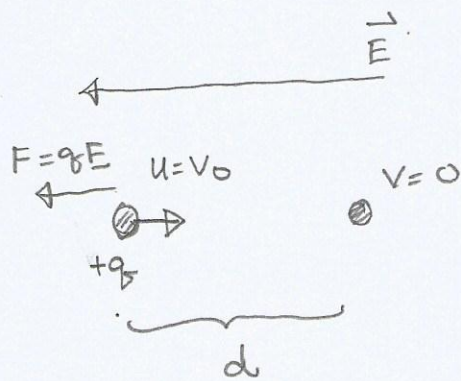 E
F = qE
u = v₀
v = 0
+q
d